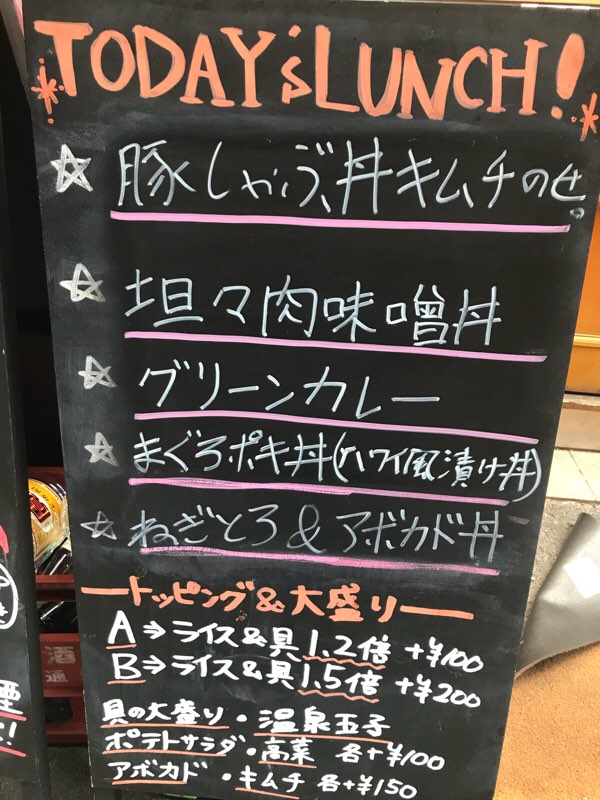 TODAY'S LUNCH!
☆ 豚しゃぶ丼キムチのせ。
☆ 坦々肉味噌丼
☆ グリーンカレー
☆ まぐろポキ丼(ハワイ風漬け丼)
☆ ねぎとろ&アボカド丼
ートッピング&大盛りー
A⇒ライス&具1.2倍 +¥100
B⇒ライス&具1.5倍 +¥200
具の大盛り・温泉玉子
ポテトサラダ・高菜 各+¥100
アボカド・キムチ 各+¥150
酒
通